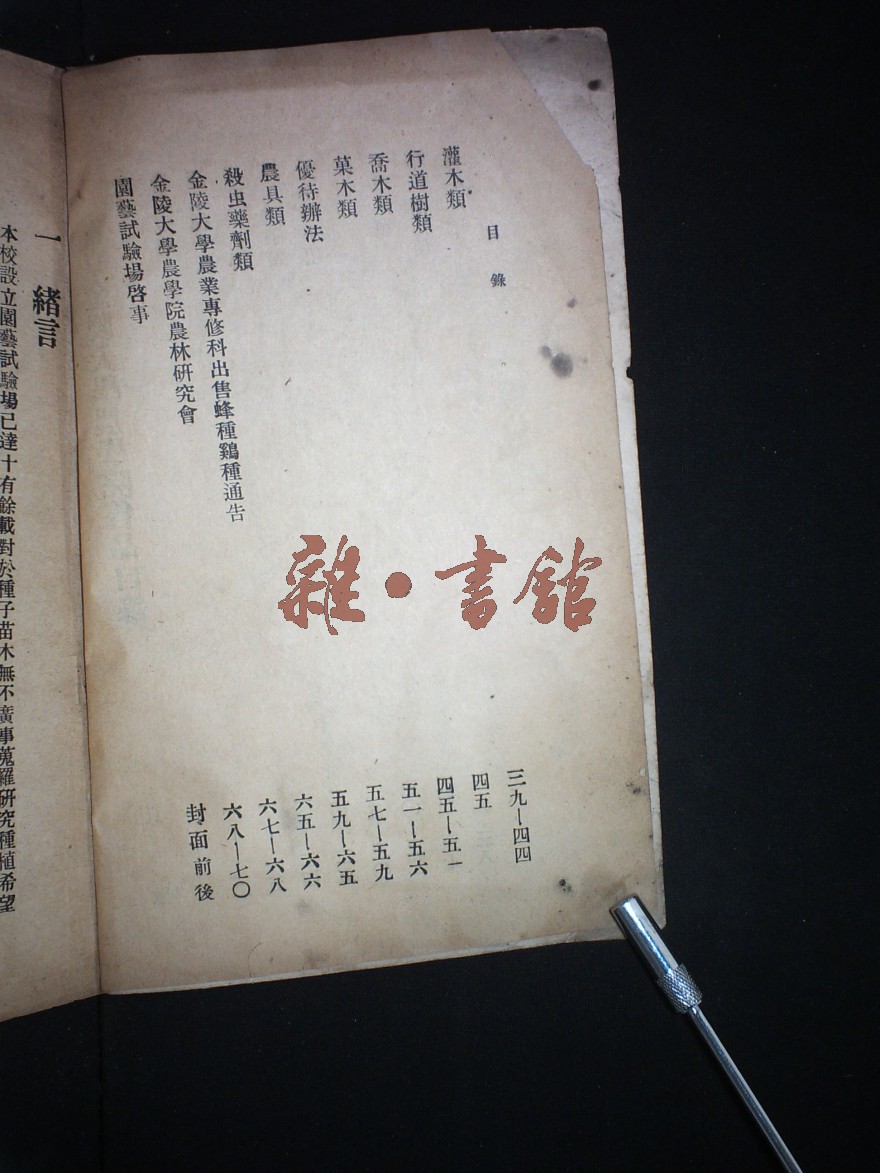 目錄
灌木類 三九—四四
行道樹類 四五
喬木類 四五—五一
菓木類 五一—五六
優待辦法 五七—五九
農具類 五九—六五
殺虫藥劑類 六五—六六
金陵大學農業專修科出售蜂種鷄種通告 六七—六八
金陵大學農學院農林研究會 六八—七〇
園藝試驗場啓事 封面前後
雜·書館
一 緒言
本校設立園藝試驗場已達十有餘載對於種子苗木無不廣事蒐羅研究種植希望